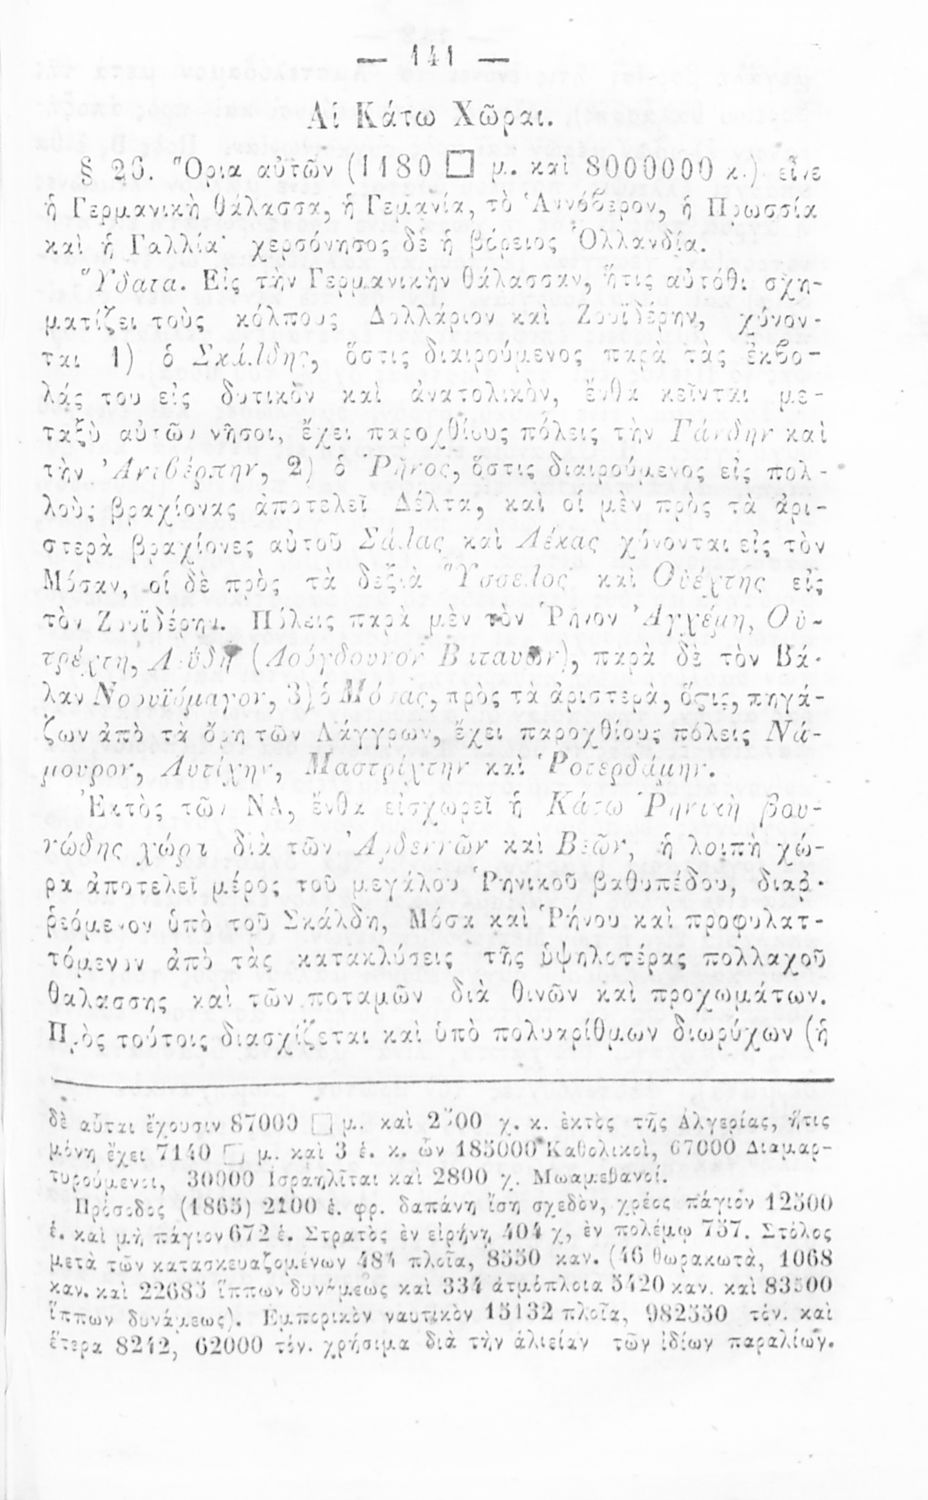 — 141 —
Αἱ Κάτω Χῶραι.
§ 26. Ὅρια αὐτῶν (1180 □ μ. καὶ 8000000 κ.) εἶνε
ἡ Γερμανικὴ θάλασσα, ἡ Γεμανία, τὸ Ἀννόβερον, ἡ Πρωσσία
καὶ ἡ Γαλλία· χερσόνησος δὲ ἡ βόρειος Ὀλλανδία.
Ὕδατα. Εἰς τὴν Γερμανικὴν θάλασσαν, ἥτις αὐτόθι σχη-
ματίζει τοὺς κόλπους Δολλάριον καὶ Ζουϊδέρην, χύνον-
ται 1) ὁ Σκάλδης, ὅστις διαιρούμενος παρὰ τὰς ἐκβο-
λάς του εἰς δυτικὸν καὶ ἀνατολικὸν, ἔνθα κεῖνται με-
ταξὺ αὐτῶν νῆσοι, ἔχει παροχθίους πόλεις τὴν Γάνδην καὶ
τὴν Ἀντβέρπην, 2) ὁ Ῥῆνος, ὅστις διαιρούμενος εἰς πολ-
λοὺς βραχίονας ἀποτελεῖ Δέλτα, καὶ οἱ μὲν πρὸς τὰ ἀρι-
στερὰ βραχίονες αὐτοῦ Σάλας καὶ Λέκας χύνονται εἰς τὸν
Μόσαν, οἱ δὲ πρὸς τὰ δεξιὰ Ὕσσελος καὶ Οὐέχτης εἰς
τὸν Ζουϊδέρην. Πόλεις παρὰ μὲν τὸν Ῥῆνον Ἀγχέμη, Οὐ-
τρέχτη, Λεΰδη (Λούγδουνον Βαταυῶν), παρὰ δὲ τὸν Βά-
λαν Νοουϊόμαγον, 3) ὁ Μόσας, πρὸς τὰ ἀριστερὰ, ὅςτις, πηγά-
ζων ἀπὸ τὰ ὄρη τῶν Λάγγρων, ἔχει παροχθίους πόλεις Νά-
μουρον, Λυτίχην, Μαστρίχτην καὶ Ῥοτερδάμην.
Ἐκτὸς τῶν ΝΑ, ἔνθα εἰσχωρεῖ ἡ Κάτω Ῥηνικὴ βου-
νώδης χώρα διὰ τῶν Ἀρδεννῶν καὶ Βεῶν, ἡ λοιπὴ χώ-
ρα ἀποτελεῖ μέρος τοῦ μεγάλου Ῥηνικοῦ βαθυπέδου, διαρ-
ῥεόμενον ὑπὸ τοῦ Σκάλδη, Μόσα καὶ Ῥήνου καὶ προφυλατ-
τόμενον ἀπὸ τὰς κατακλύσεις τῆς ὑψηλοτέρας πολλαχοῦ
θαλασσης καὶ τῶν ποταμῶν διὰ θινῶν καὶ προχωμάτων.
Πρὸς τούτοις διασχίζεται καὶ ὑπὸ πολυαρίθμων διωρύχων (ἡ
δὲ αὗται ἔχουσιν 87000 □ μ. καὶ χ. κ. ἐκτὸς τῆς Ἀλγερίας, ἥτις
μόνη ἔχει 7140 □ μ. καὶ 3 ἑ. κ. ὧν 185000 Καθολικοὶ, 67000 Διαμαρ-
τυρούμενοι, 30000 Ἰσραηλῖται καὶ 2800 χ. Μωαμεθανοί.
Πρόσοδος (1865) 2100 ἑ. φρ. δαπάνη ἴση σχεδὸν, χρέος πάγιον 12500
ἑ. καὶ μὴ πάγιον 672 ἑ. Στρατὸς ἐν εἰρήνῃ 404 χ, ἐν πολέμῳ 757. Στόλος
μετὰ τῶν κατασκευαζομένων 484 πλοῖα, 8550 καν. (46 θωρακωτὰ, 1068
καν. καὶ 22685 ἵππων δυνάμεως καὶ 334 ἀτμόπλοια 5420 καν. καὶ 83500
ἵππων δυνάμεως). Ἐμπορικὸν ναυτικὸν 15132 πλοῖα, 982550 τόν. καὶ
ἕτερα 8242, 62000 τόν. χρήσιμα διὰ τὴν ἁλιείαν τῶν ἰδίων παραλίων.